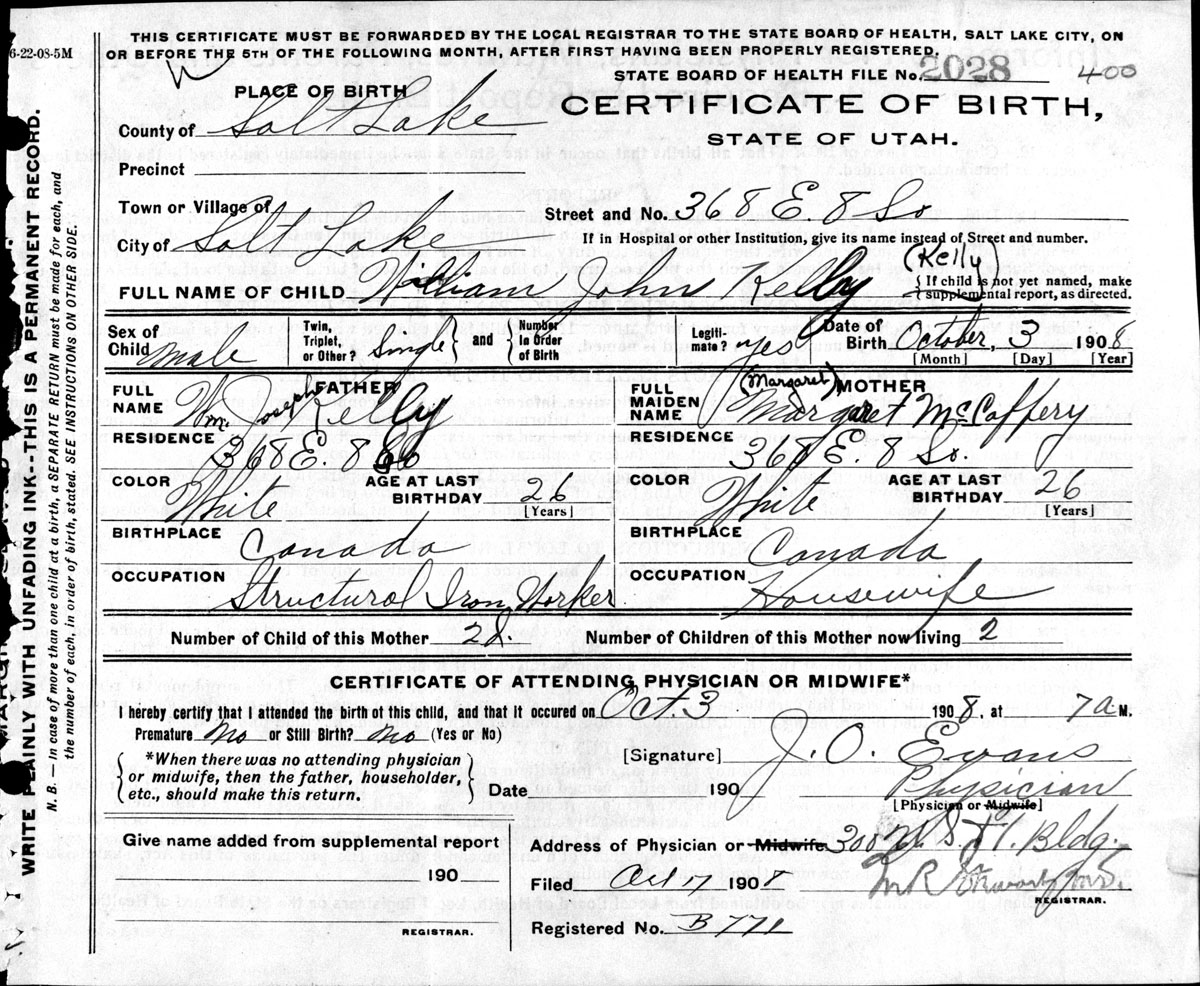 6-22-08-5M
THIS CERTIFICATE MUST BE FORWARDED BY THE LOCAL REGISTRAR TO THE STATE BOARD OF HEALTH, SALT LAKE CITY, ON
OR BEFORE THE 5TH OF THE FOLLOWING MONTH, AFTER FIRST HAVING BEEN PROPERLY REGISTERED.
STATE BOARD OF HEALTH FILE No. 2028 400
PLACE OF BIRTH
CERTIFICATE OF BIRTH,
STATE OF UTAH.
County of Salt Lake
Precinct
Town or Village of
Street and No. 368 E. 8 So
City of Salt Lake
If in Hospital or other Institution, give its name instead of Street and number.
(Kelly)
FULL NAME OF CHILD William John Kelly
{ If child is not yet named, make
supplemental report, as directed.
Sex of Child male
Twin, Triplet, or Other? Single } and { Number in Order of Birth
Legitimate? yes
Date of Birth October, 3 1908
[Month] [Day] [Year]
FATHER
FULL NAME Wm. Joseph Kelly
RESIDENCE 368 E. 8 So
COLOR White
AGE AT LAST BIRTHDAY 26 [Years]
BIRTHPLACE Canada
OCCUPATION Structural Iron Worker
(Margaret) MOTHER
FULL MAIDEN NAME Margaret McCaffery
RESIDENCE 368 E. 8 So.
COLOR White
AGE AT LAST BIRTHDAY 26 [Years]
BIRTHPLACE Canada
OCCUPATION Housewife
Number of Child of this Mother 2d. Number of Children of this Mother now living 2
CERTIFICATE OF ATTENDING PHYSICIAN OR MIDWIFE*
I hereby certify that I attended the birth of this child, and that it occured on Oct 3 1908, at 7 a M.
Premature No or Still Birth? No (Yes or No)
{ *When there was no attending physician
or midwife, then the father, householder,
etc., should make this return. }
[Signature] J. O. Evans
Date 190 Physician
[Physician or Midwife]
Give name added from supplemental report
190
REGISTRAR.
Address of Physician or Midwife 300 Bldg.
Filed Oct 17 190
REGISTRAR.
Registered No. B 771
WRITE PLAINLY WITH UNFADING INK--THIS IS A PERMANENT RECORD.
N. B. — In case of more than one child at a birth, a SEPARATE RETURN must be made for each, and
the number of each, in order of birth, stated. SEE INSTRUCTIONS ON OTHER SIDE.